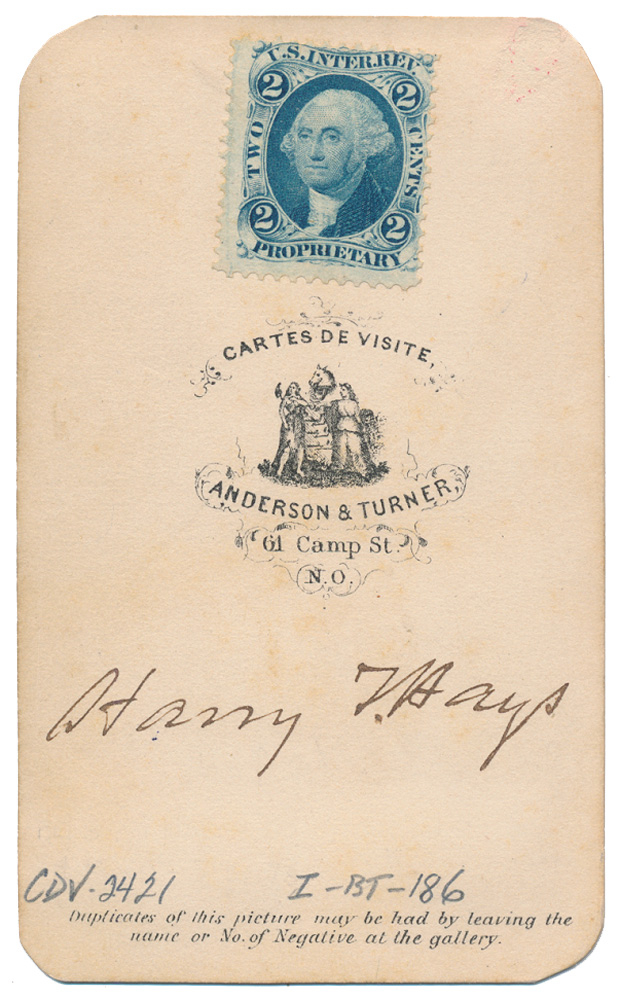 U.S. INTER. REV.
2 2
TWO CENTS
2 2
PROPRIETARY
CARTES DE VISITE,
ANDERSON & TURNER,
61 Camp St.
N.O.
Harry T. Hays
CDV-2421 I-BT-186
Duplicates of this picture may be had by leaving the
name or No. of Negative at the gallery.